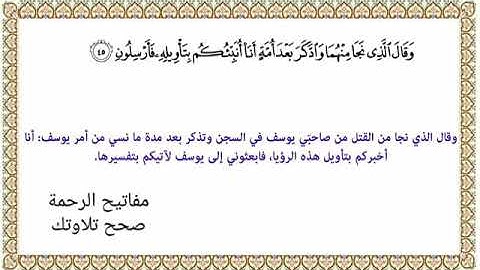 وَقَالَ الَّذِى نَجَا مِنْهُمَا وَادَّكَرَ بَعْدَ أُمَّةٍ أَنَا۠ أُنَبِّئُكُم بِتَأْوِيلِهِۦ فَأَرْسِلُونِ ٤٥
وقال الذي نجا من القتل من صاحبَي يوسف في السجن وتذكر بعد مدة ما نسي من أمر يوسف: أنا
أخبركم بتأويل هذه الرؤيا، فابعثوني إلى يوسف لآتيكم بتفسيرها.
مفاتيح الرحمة
صحح تلاوتك